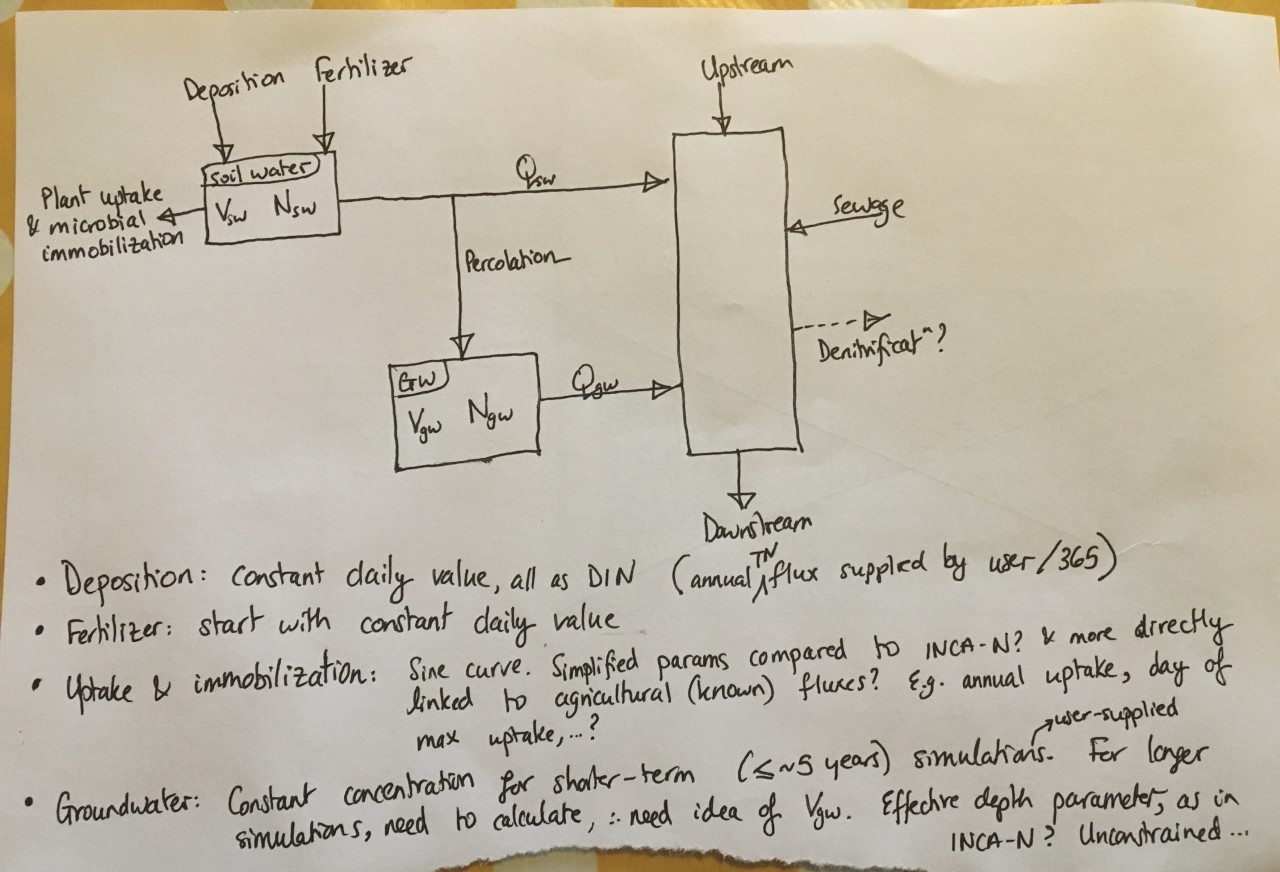 Deposition Fertilizer
Upstream
soil water
Vsw Nsw
Plant uptake
& microbial
immobilization
Qsw
Sewage
Percolation
Denitrificatⁿ?
GW
Vgw Ngw
Qgw
Downstream
• Deposition: constant daily value, all as DIN (annual TN flux supplied by user/365)
• Fertilizer: start with constant daily value
• Uptake & immobilization: Sine curve. Simplified params compared to INCA-N? & more directly
linked to agricultural (known) fluxes? E.g. annual uptake, day of
max uptake,...?
user-supplied
• Groundwater: Constant concentration for shorter-term (≤~5 years) simulations. For longer
simulations, need to calculate, ∴ need idea of Vgw. Effective depth parameter, as in
INCA-N? Unconstrained...